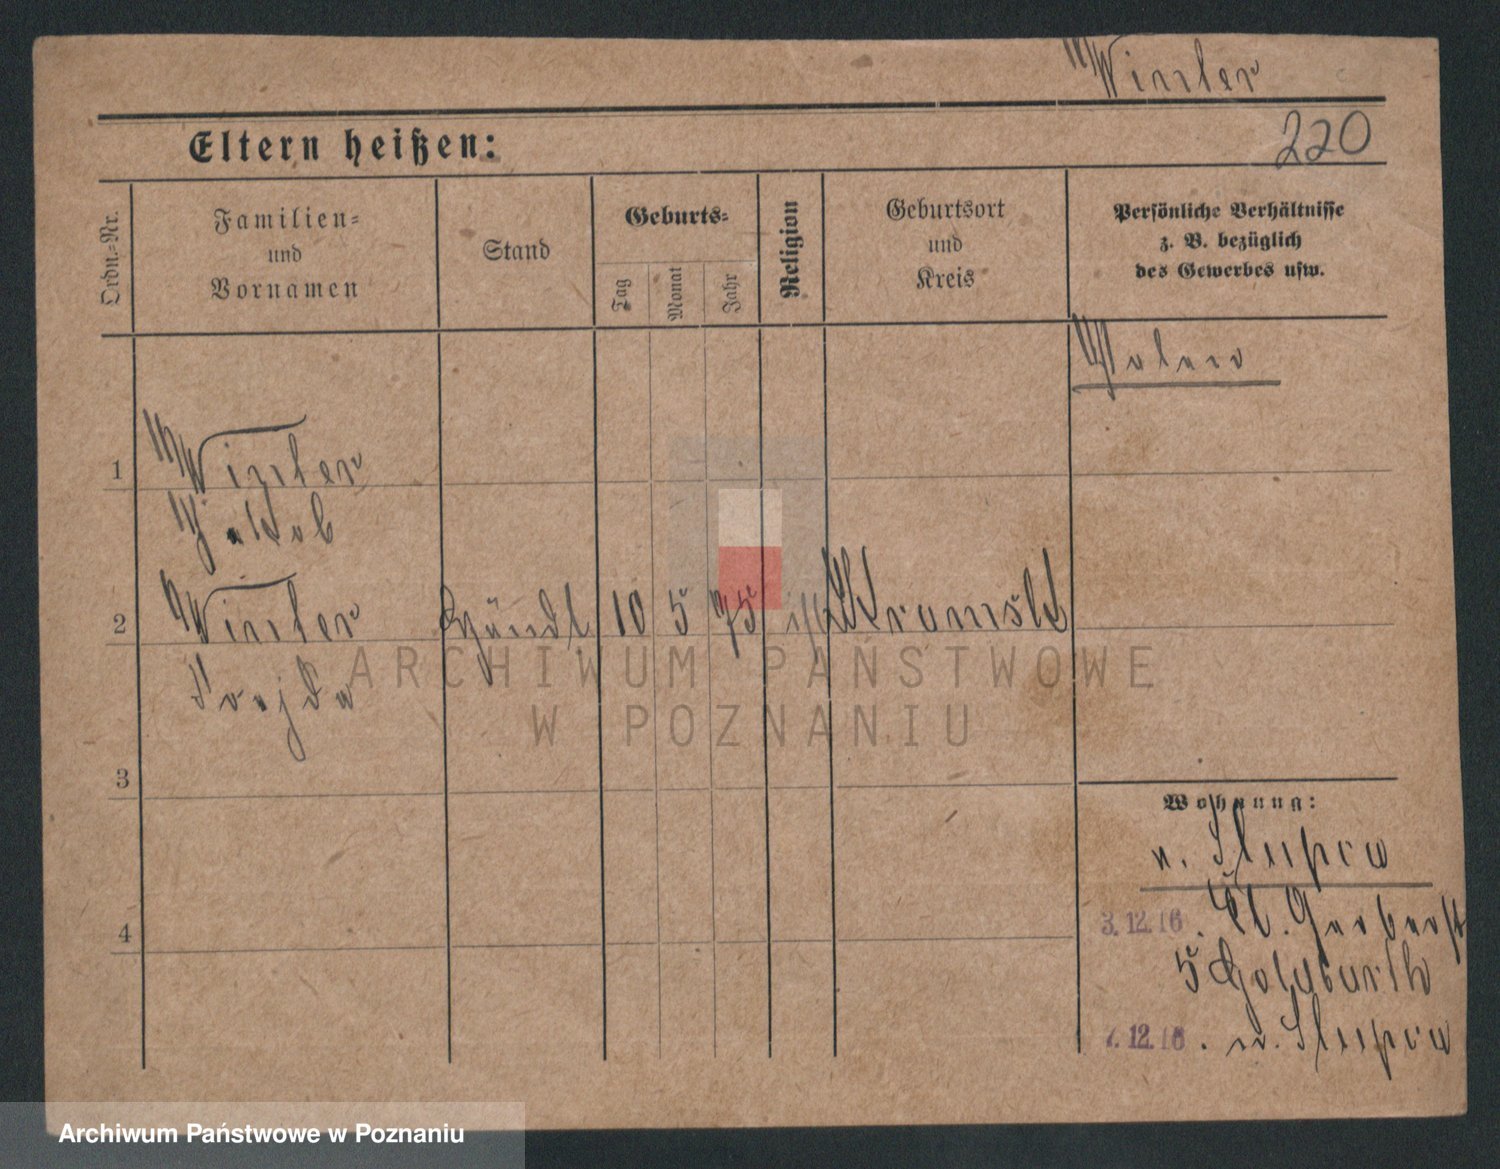 Winter
220
Eltern heißen:
Ordn.-Nr.
Familien-
und
Vornamen
Stand
Geburts-
Tag
Monat
Jahr
Religion
Geburtsort
und
Kreis
Persönliche Verhältnisse
z. B. bezüglich
des Gewerbes usw.
Polen
1
Winter
Jakob
2
Winter
Händl 10 5 75
Frajda
3
4
Wohnung:
n. Slupca
3.12.16. Gerberst
5
7.12.16. n. Slupca
ARCHIWUM PAŃSTWOWE
W POZNANIU
Archiwum Państwowe w Poznaniu